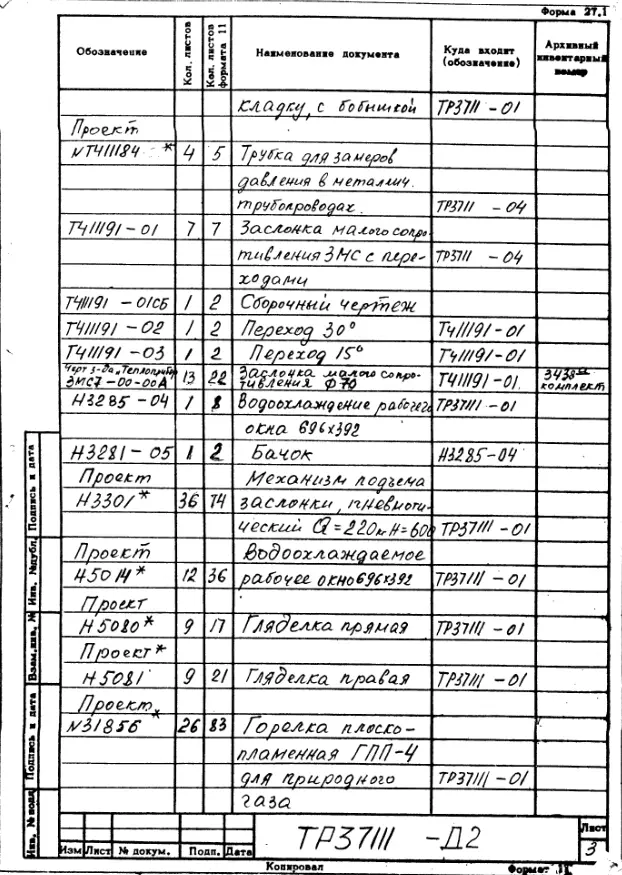 Форма 27.1
Обозначение Кол. листов Кол. листов формата 11 Наименование документа Куда входит (обозначение) Архивный инвентарный номер
кладку, с бобышкой ТР37111-01
Проект
NТ411184 * 4 5 Трубка для замеров
давления в металлич.
трубопроводах. ТР37111 -04
Т411191-01 7 7 Заслонка малого сопро-
тивления ЗМС с пере- ТР37111 -04
ходами
Т411191 -01СБ 1 2 Сборочный чертеж
Т411191 -02 1 2 Переход 30° Т411191-01
Т411191 -03 1 2 Переход 15° Т411191-01
Черт з-да „Теплоприбор" Заслонка малого сопро-
ЗМС7-00-00А 13 22 тивления Ф70 Т411191-01. комплект
Н3285-04 1 8 Водоохлаждение рабочего ТР37111-01
окна 696х392
Н3281-05 1 2 Бачок Н3285-04
Проект Механизм подъема
Н3301* 36 74 заслонки, пневмати-
ческий Q=220кг Н=600 ТР37111-01
Проект Водоохлаждаемое
Н5014* 12 36 рабочее окно 696х392 ТР37111 -01
Проект
Н5080* 9 17 Гляделка прямая ТР37111 -01
Проект*
Н5081 9 21 Гляделка правая ТР37111 -01
Проект *
N31856 26 83 Горелка плоско-
пламенная ГПП-4
для природного ТР37111-01
газа
Инв. № подл Подпись и дата Взам.инв. № Инв. №дубл. Подпись и дата
ТР37111 -Д2 Лист
Изм Лист № докум. Подп. Дата 3
Копировал Формат 11